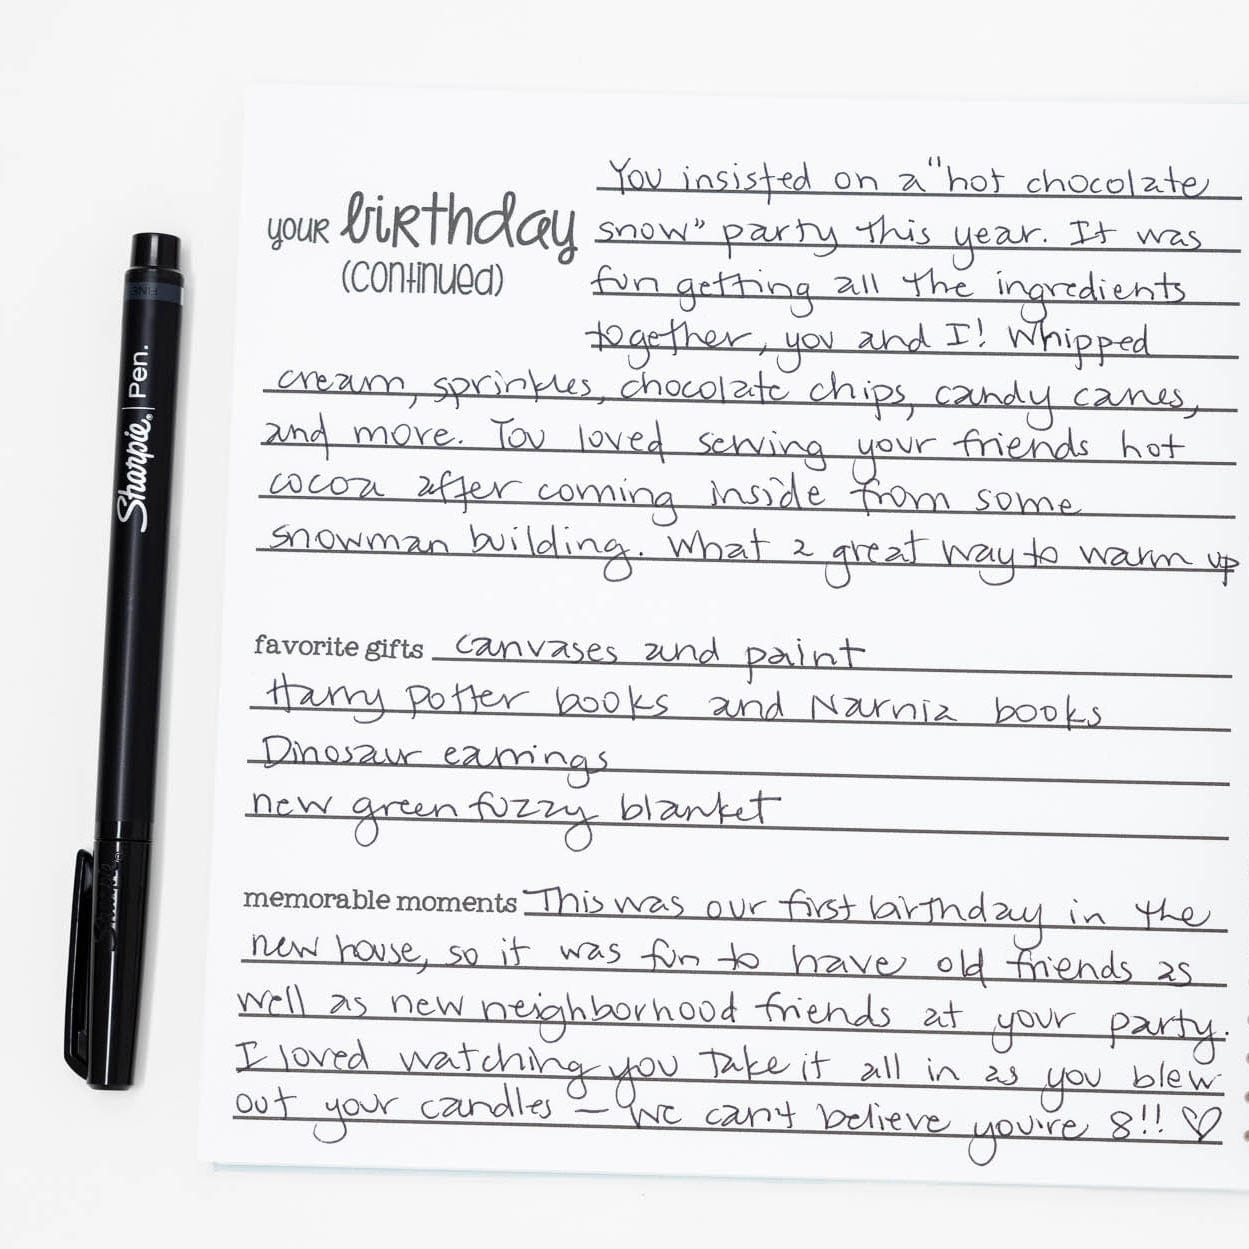 You insisted on a "hot chocolate
your birthday
snow" party this year. It was
(continued)
fun getting all the ingredients
together, you and I! Whipped
cream, sprinkles, chocolate chips, candy canes,
and more. You loved serving your friends hot
cocoa after coming inside from some
snowman building. What a great way to warm up
favorite gifts canvases and paint
Harry Potter books and Narnia books
Dinosaur earrings
new green fuzzy blanket
memorable moments This was our first birthday in the
new house, so it was fun to have old friends as
well as new neighborhood friends at your party.
I loved watching you take it all in as you blew
out your candles – we can't believe you're 8!! ♡
FINE
Sharpie® | Pen.
Sharpie®